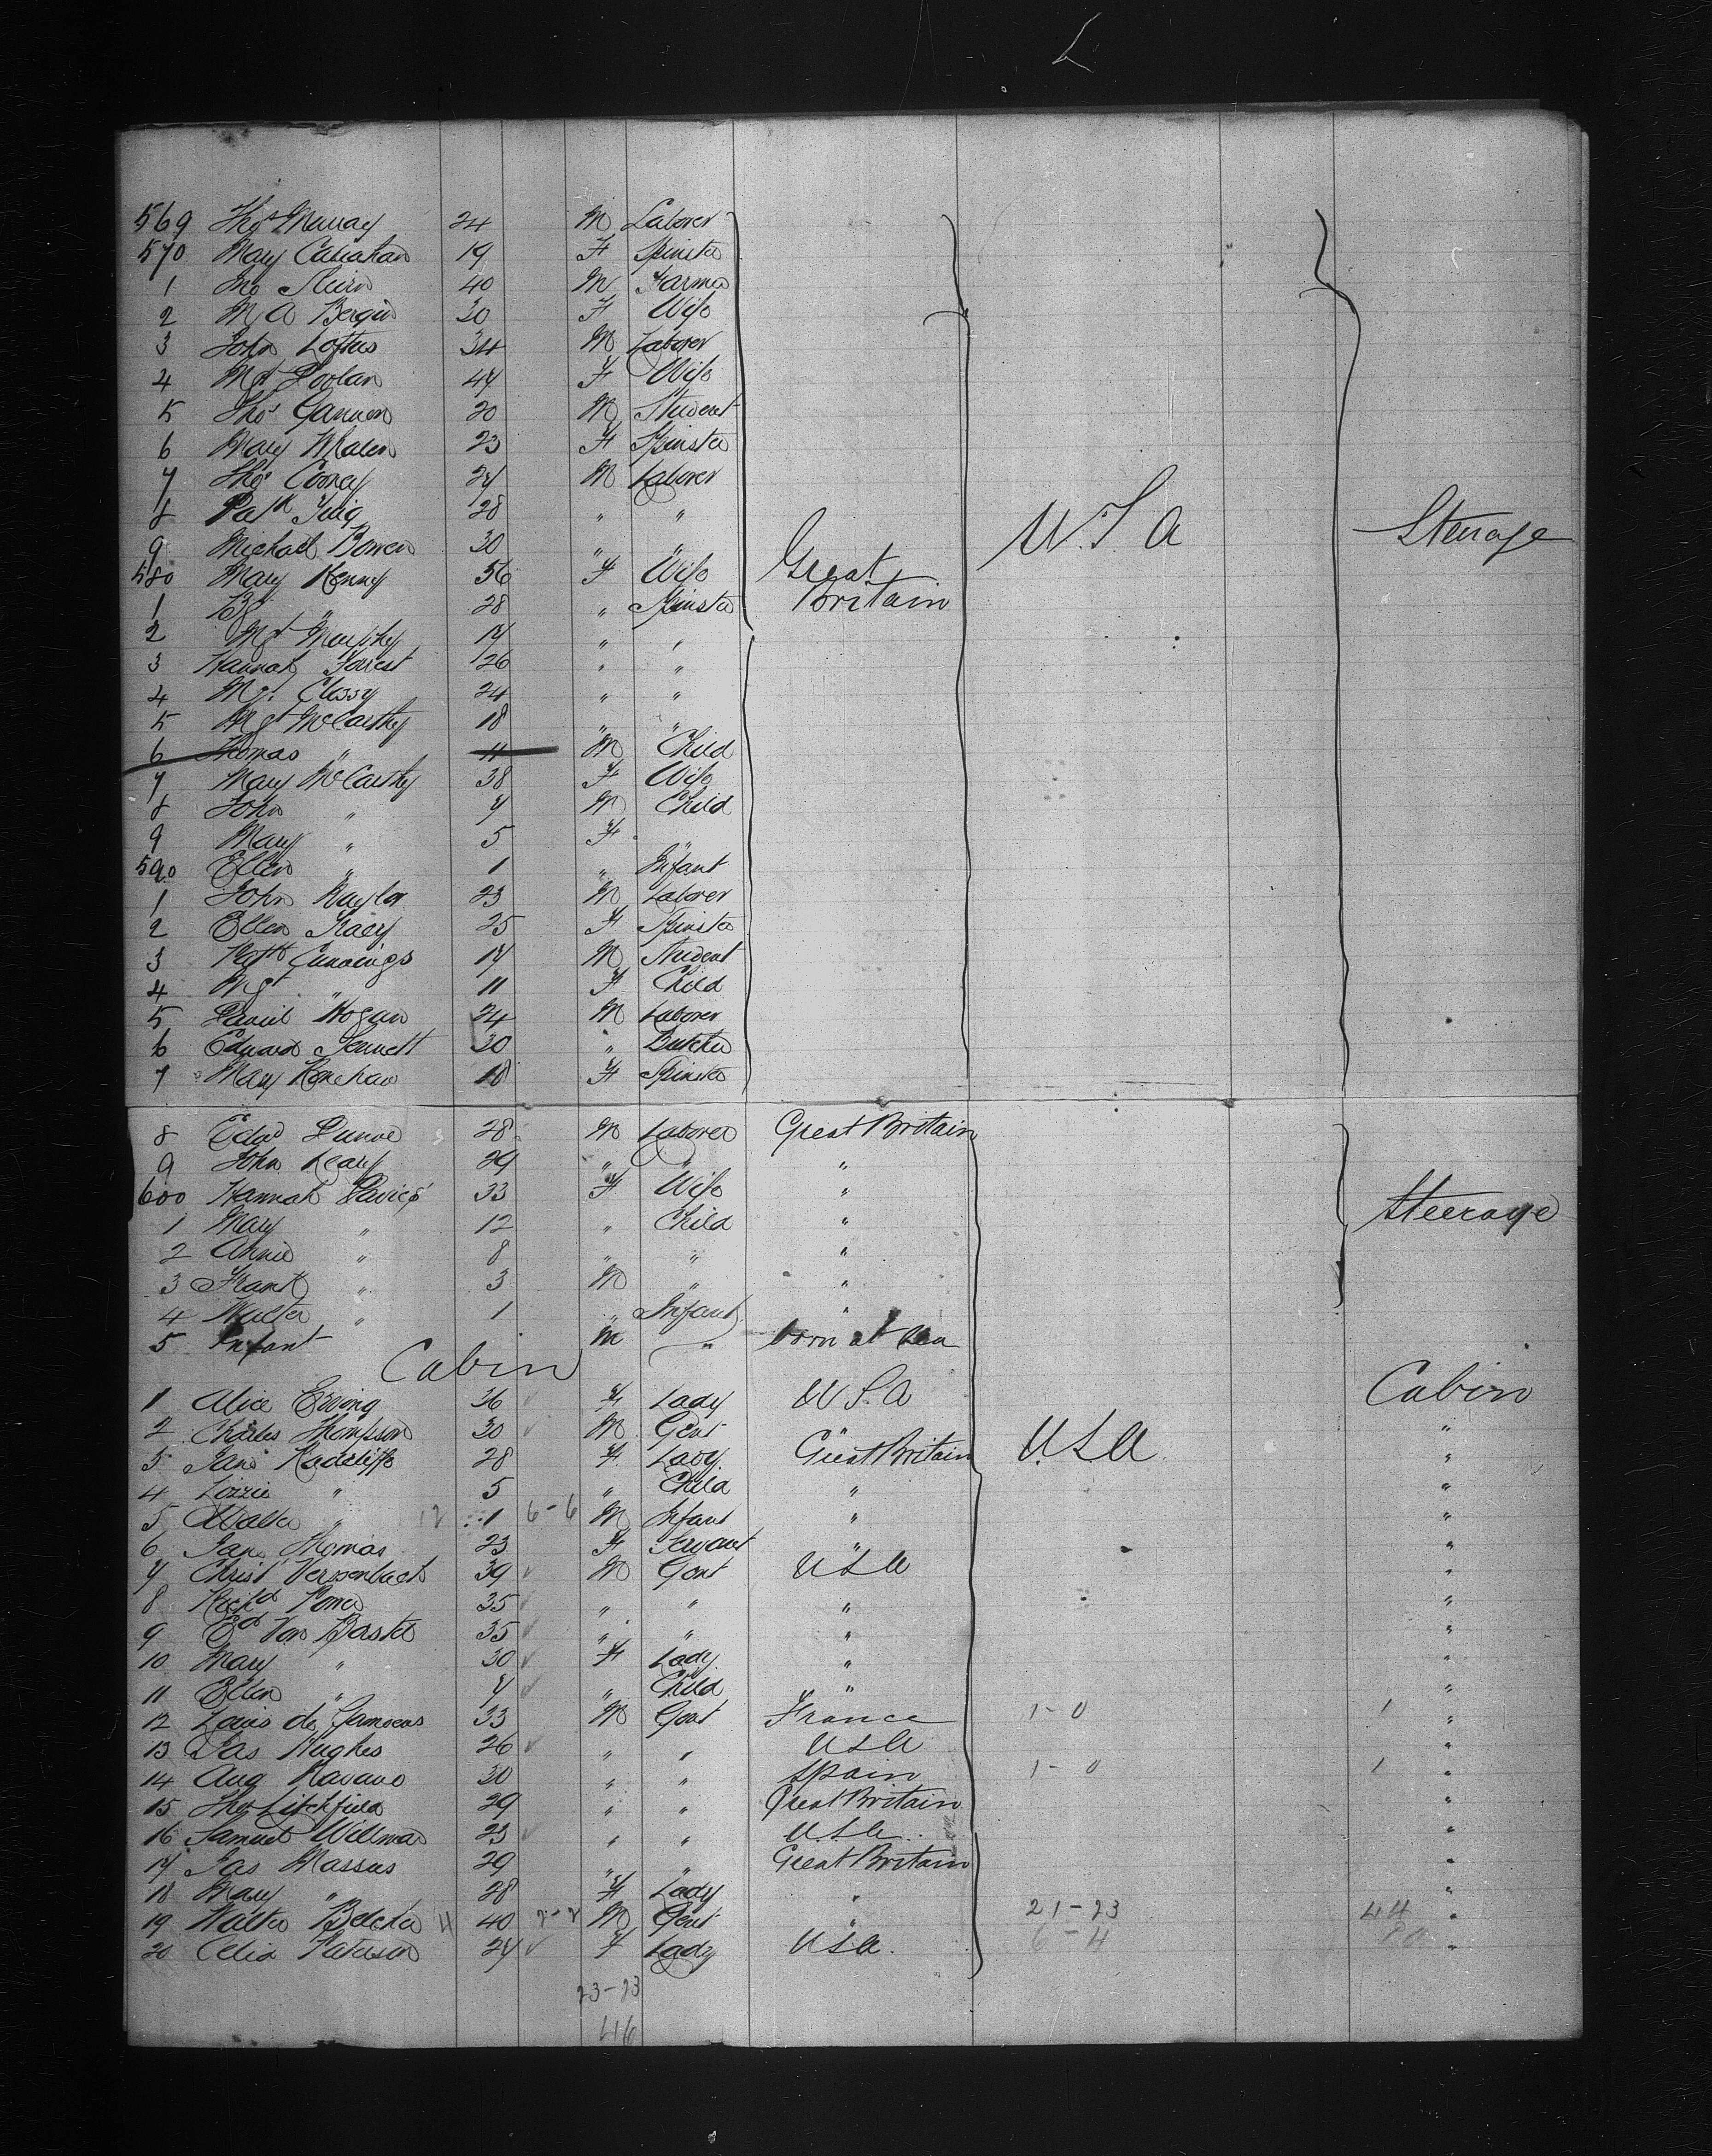 569 Thos Murray 24 M Laborer
570 Mary Callahan 19 F Spinster
1 Jno 40 M Farmer
2 M A Bergin 30 F Wife
3 John Loftus 34 M Laborer
4 Mgt Doolan 47 F Wife
5 Thos Gannon 20 M Student
6 Mary Whalen 23 F Spinster
7 Thos Cooney 27 M Laborer
8 Patk 28 " "
9 Michael Bowen 30 " "
580 Mary Kenny 56 F Wife
1 " 28 " Spinster
Great Britain
U.S.A
Steerage
2 Mgt Murphy 17 " "
3 Hannah Forrest 26 " "
4 Mgt Clossy 24 " "
5 Mgt McCarthy 18 " "
6 Thomas " 11 M Child
7 Mary McCarthy 38 F Wife
8 John " 7 M Child
9 Mary " 5 F "
590 Ellen " 1 " Infant
1 John Naylor 23 M Laborer
2 Ellen Tracy 25 F Spinster
3 Cummings 17 M Student
4 Mgt " 11 F Child
5 Daniel Hogan 24 M Laborer
6 Edward Sennett 30 " Butcher
7 Mary 18 F Spinster
8 Edwd Dunne 28 M Laborer Great Britain
9 John Leary 29 " " "
600 Hannah Davies 33 F Wife "
Steerage
1 Mary " 12 " Child "
2 Annie " 8 " " "
3 Frank " 3 M " "
4 Walter " 1 " Infant "
5 Infant M " born at sea
Cabin
1 Alice Ewing 36 F Lady U.S.A Cabin
2 Charles Thompson 30 M Gent " "
3 Jane Radcliffe 28 F Lady Great Britain USA "
4 Lizzie " 5 " Child " "
5 Walter " 12 1 6-6 M Infant " "
6 Jane Thomas 23 F Servant " "
7 Christ 39 M Gent USA "
8 Richd Power 35 " " " "
9 Ed Von 35 " " " "
10 Mary " 30 F Lady " "
11 Ellen " 7 " Child " "
12 Louis de 33 M Gent France 1-0 1 "
13 Jas Hughes 26 " " USA "
14 Aug Navarro 30 " " Spain 1-0 1 "
15 Thos Litchfield 29 " " Great Britain "
16 Samuel Willmar 23 " " USA "
17 Jas Massus 29 " " Great Britain "
18 Mary " 28 F Lady " "
19 Walter Belcher 4 40 2-2 M Gent " 21-23 44 "
20 Celia Paterson 27 F Lady USA 6-4 "
23-23
46